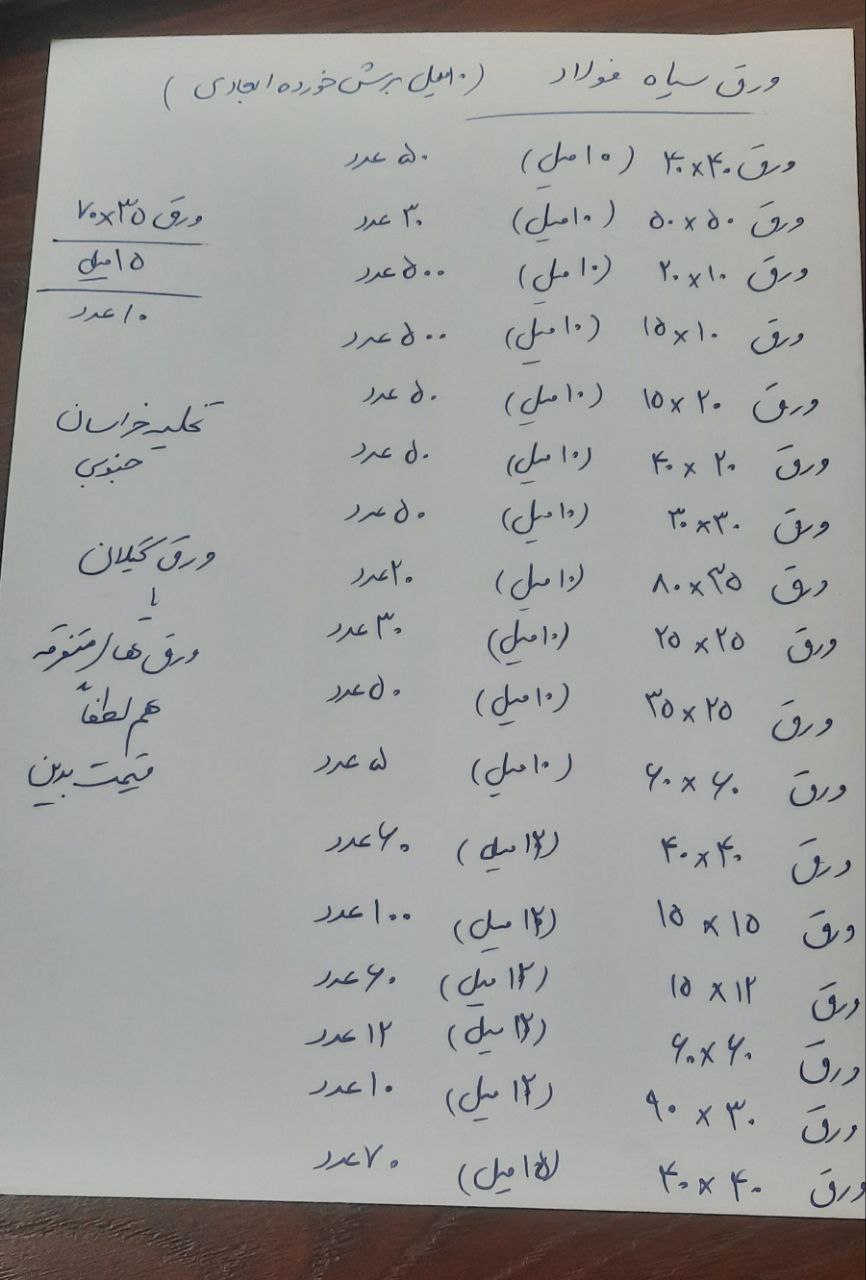 ورق سیاه فولاد (۱۰میل برش خورده ابعادی)
ورق ۴۰×۴۰ (۱۰ میل) ۵۰ عدد
ورق ۵۰×۵۰ (۱۰میل) ۳۰ عدد
ورق ۲۰×۱۰ (۱۰ میل) ۵۰۰ عدد
ورق ۱۵×۱۰ (۱۰ میل) ۵۰۰ عدد
ورق ۱۵×۲۰ (۱۰ میل) ۵۰ عدد
ورق ۴۰×۲۰ (۱۰ میل) ۵۰ عدد
ورق ۳۰×۳۰ (۱۰ میل) ۵۰ عدد
ورق ۸۰×۳۵ (۱۰ میل) ۲۰ عدد
ورق ۲۵×۲۵ (۱۰ میل) ۳۰ عدد
ورق ۳۵×۲۵ (۱۰ میل) ۵۰ عدد
ورق ۶۰×۶۰ (۱۰ میل) ۵ عدد
ورق ۴۰×۴۰ (۱۲ میل) ۶۰ عدد
ورق ۱۵×۱۵ (۱۲ میل) ۱۰۰ عدد
ورق ۱۵×۱۲ (۱۲ میل) ۶۰ عدد
ورق ۶۰×۶۰ (۱۲ میل) ۱۲ عدد
ورق ۹۰×۳۰ (۱۲ میل) ۱۰ عدد
ورق ۴۰×۴۰ (۱۵ میل) ۷۰ عدد
ورق ۷۰×۳۵
۱۵ میل
۱۰ عدد
تخلیه خراسان
جنوبی
ورق گیلان
یا
ورق های متفرقه
هم لطفاً
قیمت بدین